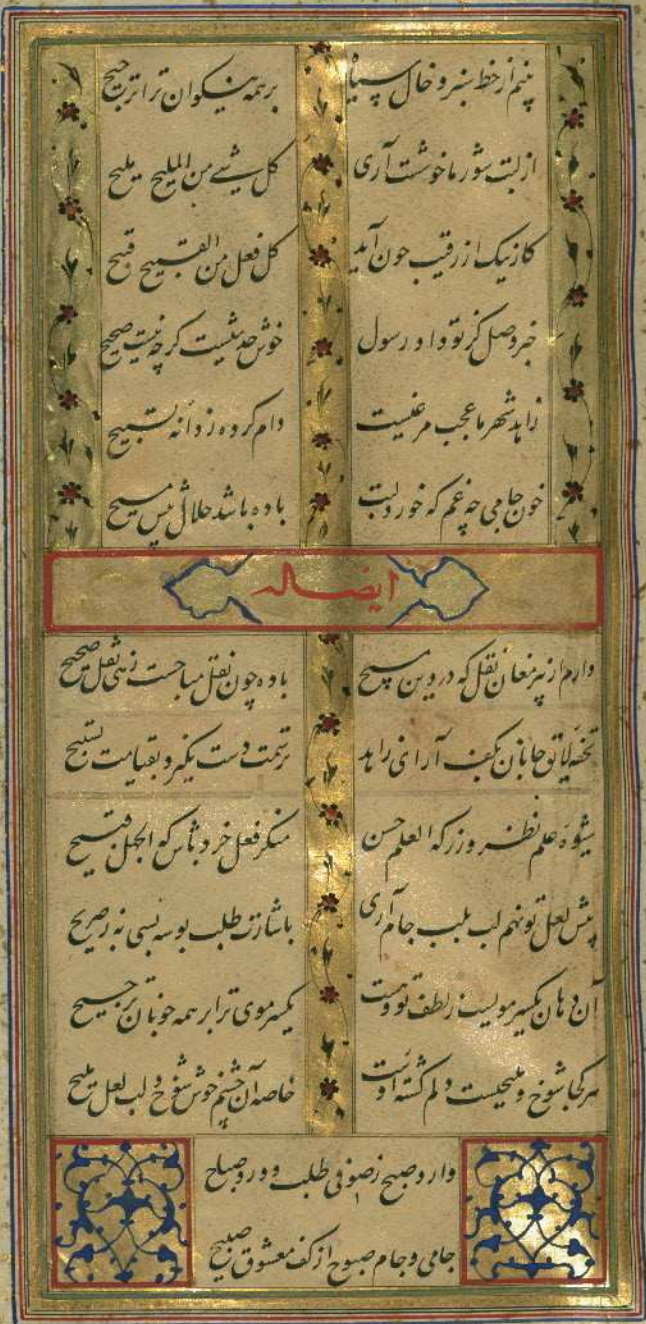 بینم از خط سبز و خال سیاه بر همه نیکوان ترا ترجیح
از لبت شور ما خوشست آری کل شیء من الملیح ملیح
کار نیک از رقیب چون آید کل فعل من القبیح قبیح
خبر وصل کز تو داد رسول خوش حدیثیست کرچه نیست صحیح
زاهد شهر ما عجب مرغیست دام کرده ز دانه تسبیح
خون جامی چه غم که خورد لبت باده باشد حلال پیش مسیح
ایضاله
دارم از پیر مغان نقل که در دین مسیح باده چون نقل مباحست زهی نقل صحیح
تحفه لایق جانان بکف آر ای زاهد ترتمت دست نکیرد بقیامت تسبیح
شیوه علم نظر ورز که العلم حسن منکر فعل خرد باش که الجهل قبیح
پیش لعل تو نهم لب بلب جام آری باشارت طلب بوسه بسی به ز صریح
آن دهان یکسر مویست ز لطف تو و هست یکسر موی ترا بر همه خوبان ترجیح
هر کجا شوخ و ملیحیست دلم کشته اوست خاصه آن چشم خوش شوخ و لب لعل ملیح
وارد صبح ز صوفی طلب و ورد صباح
جامی و جام صبوح از کف معشوق صبیح